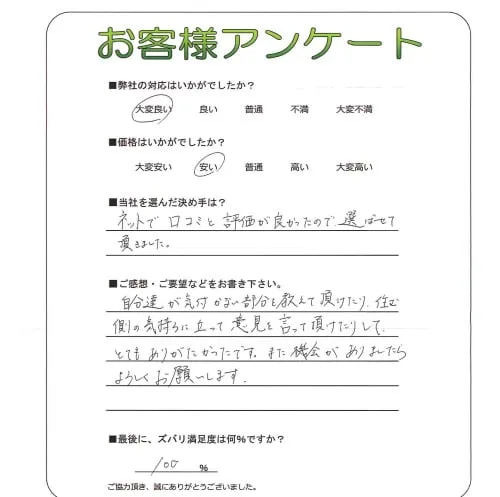 お客様アンケート
■弊社の対応はいかがでしたか?
大変良い 良い 普通 不満 大変不満
■価格はいかがでしたか?
大変安い 安い 普通 高い 大変高い
■当社を選んだ決め手は?
ネットで口コミと評価が良かったので、選ばせて
頂きました。
■ご感想・ご要望などをお書き下さい。
自分達が気付かない部分を教えて頂けたり、住む
側の気持ちに立って意見を言って頂けたりして、
とてもありがたかったです。また機会がありましたら
よろしくお願いします。
■最後に、ズバリ満足度は何%ですか?
100 %
ご協力頂き、誠にありがとうございました。